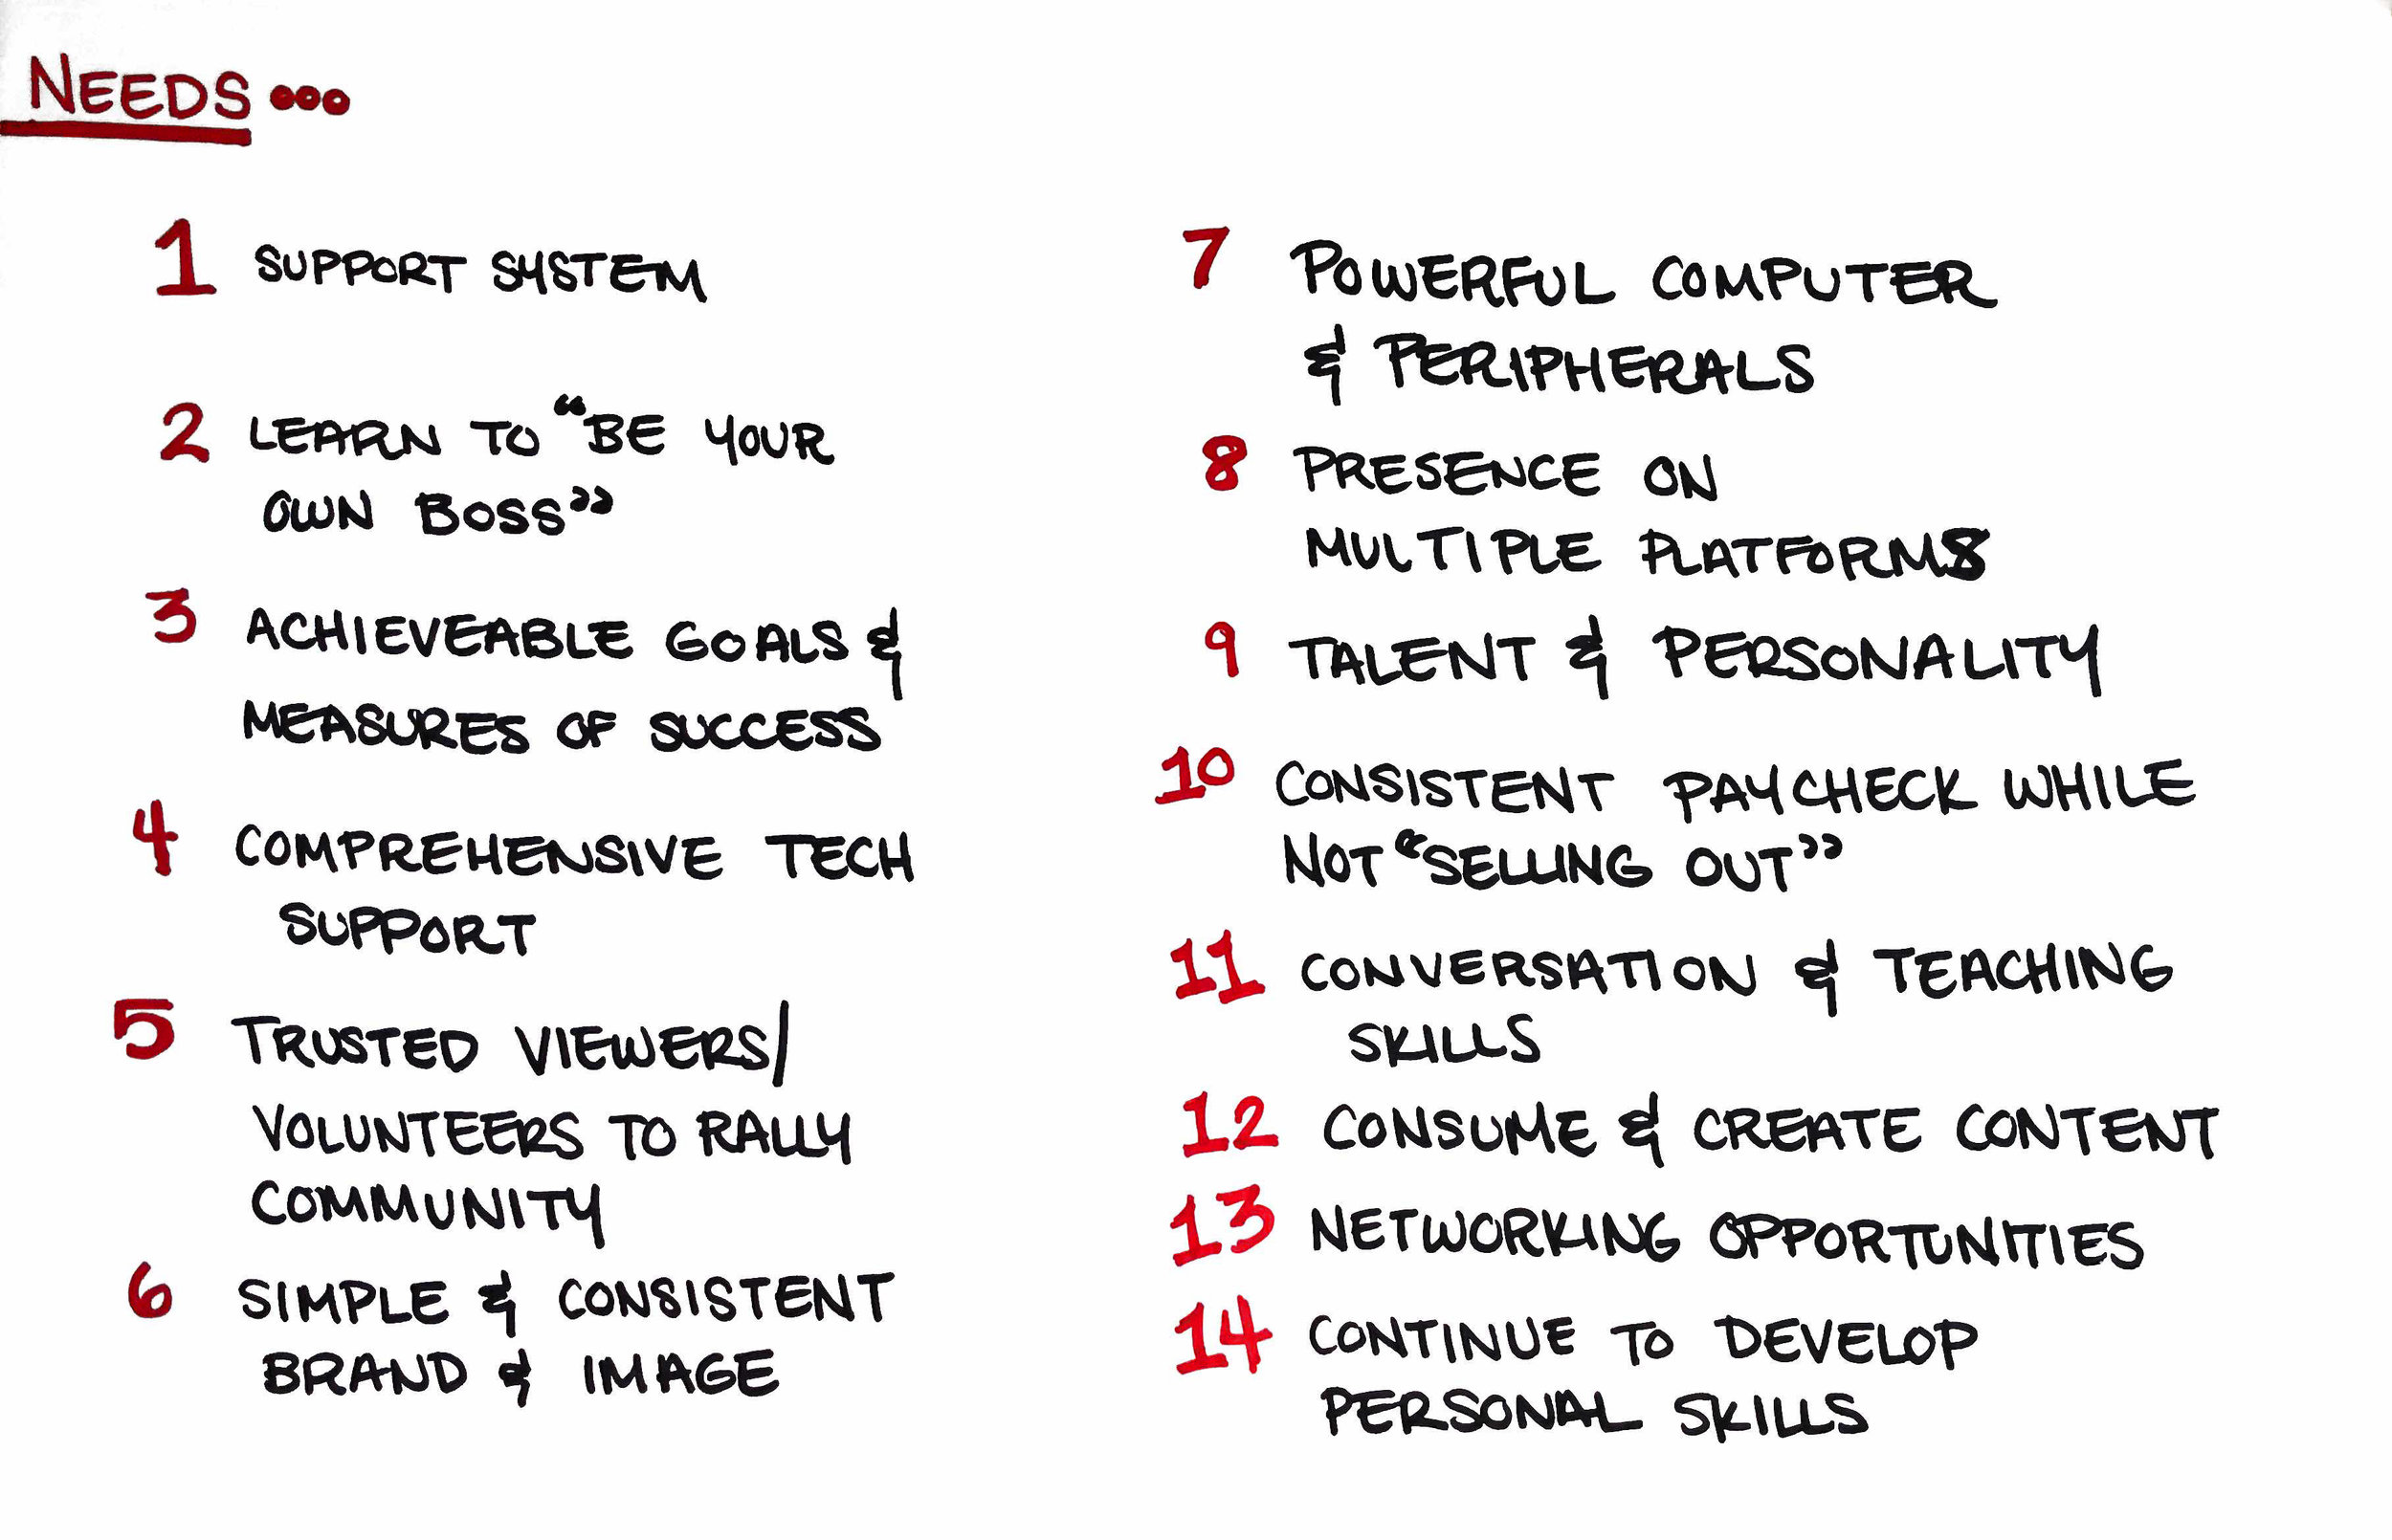 NEEDS •••
1 SUPPORT SYSTEM
2 LEARN TO "BE YOUR
OWN BOSS"
3 ACHIEVEABLE GOALS &
MEASURES OF SUCCESS
4 COMPREHENSIVE TECH
SUPPORT
5 TRUSTED VIEWERS/
VOLUNTEERS TO RALLY
COMMUNITY
6 SIMPLE & CONSISTENT
BRAND & IMAGE
7 POWERFUL COMPUTER
& PERIPHERALS
8 PRESENCE ON
MULTIPLE PLATFORMS
9 TALENT & PERSONALITY
10 CONSISTENT PAYCHECK WHILE
NOT "SELLING OUT"
11 CONVERSATION & TEACHING
SKILLS
12 CONSUME & CREATE CONTENT
13 NETWORKING OPPORTUNITIES
14 CONTINUE TO DEVELOP
PERSONAL SKILLS